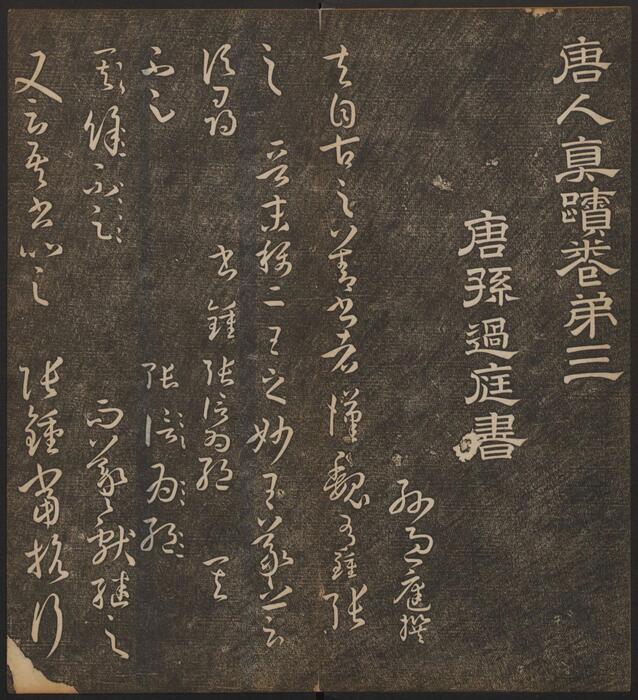 唐人真蹟卷弟三
唐孫過庭書
孫過庭撰
夫自古之善書者漢魏有鍾張
之 晉末稱二王之妙王羲之云
頃尋 書鍾張信為絕 其
不足 張
而羲獻繼之
又云吾書比之 張鍾當抗行